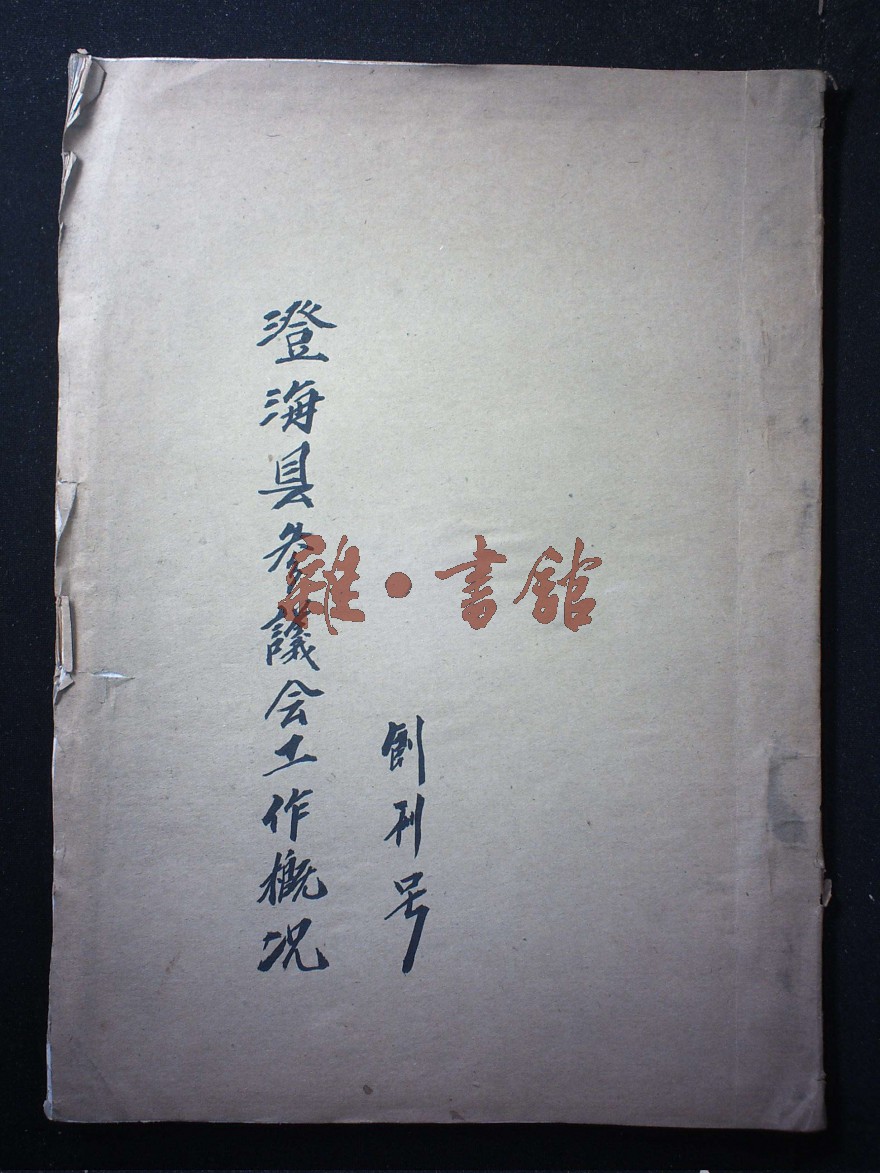 澄海县参議会工作概况
創刊号
雜·書館